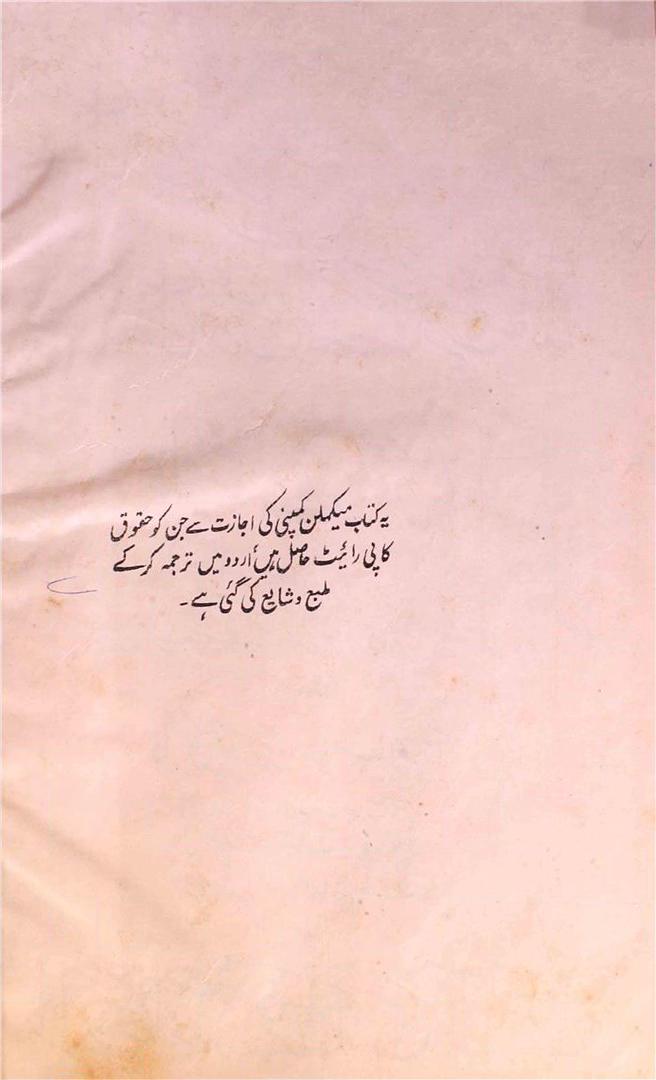 یہ کتاب میکملن کمپنی کی اجازت سے جن کو حقوق
کاپی رائیٹ حاصل ہیں اُردو میں ترجمہ کر کے
طبع و شایع کی گئی ہے۔